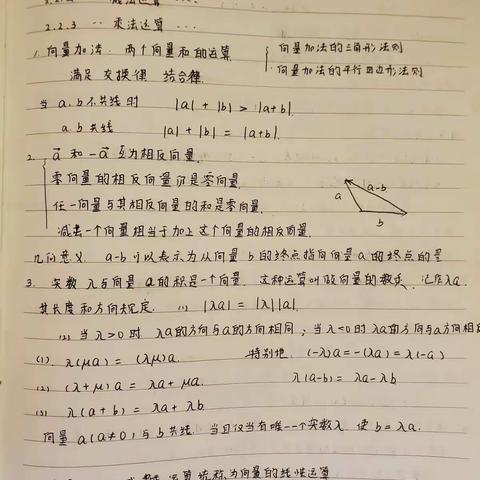 2.2.3 " 乘法运算 ...
1. 向量加法. 两个向量和的运算. { 向量加法的三角形法则
满足 交换律 结合律. 向量加法的平行四边形法则
当 a.b 不共线时 |a| + |b| > |a+b|.
a.b 共线 |a| + |b| = |a+b|.
2. a⃗ 和 -a⃗ 互为相反向量.
零向量的相反向量仍是零向量.
任一向量与其相反向量的和是零向量. a a-b b
减去一个向量相当于加上这个向量的相反向量.
几何意义. a-b 可以表示为从向量 b 的终点指向向量 a 的终点的
3. 实数 λ 与向量 a 的积是一个向量. 这种运算叫做向量的数乘. 记作 λa.
其长度和方向规定. (1) |λa| = |λ||a|.
(2) 当 λ>0 时 λa 的方向与 a 的方向相同; 当 λ<0 时 λa 的方向与 a 方向相
(1). λ(μa) = (λμ)a. 特别地. (-λ)a = -(λa) = λ(-a)
(2) (λ+μ)a = λa + μa. λ(a-b) = λa - λb
(3) λ(a+b) = λa + λb
向量 a (a≠0) 与 b 共线. 当且仅当有唯一一个实数 λ. 使 b = λa.
运算统称为向量的线性运算